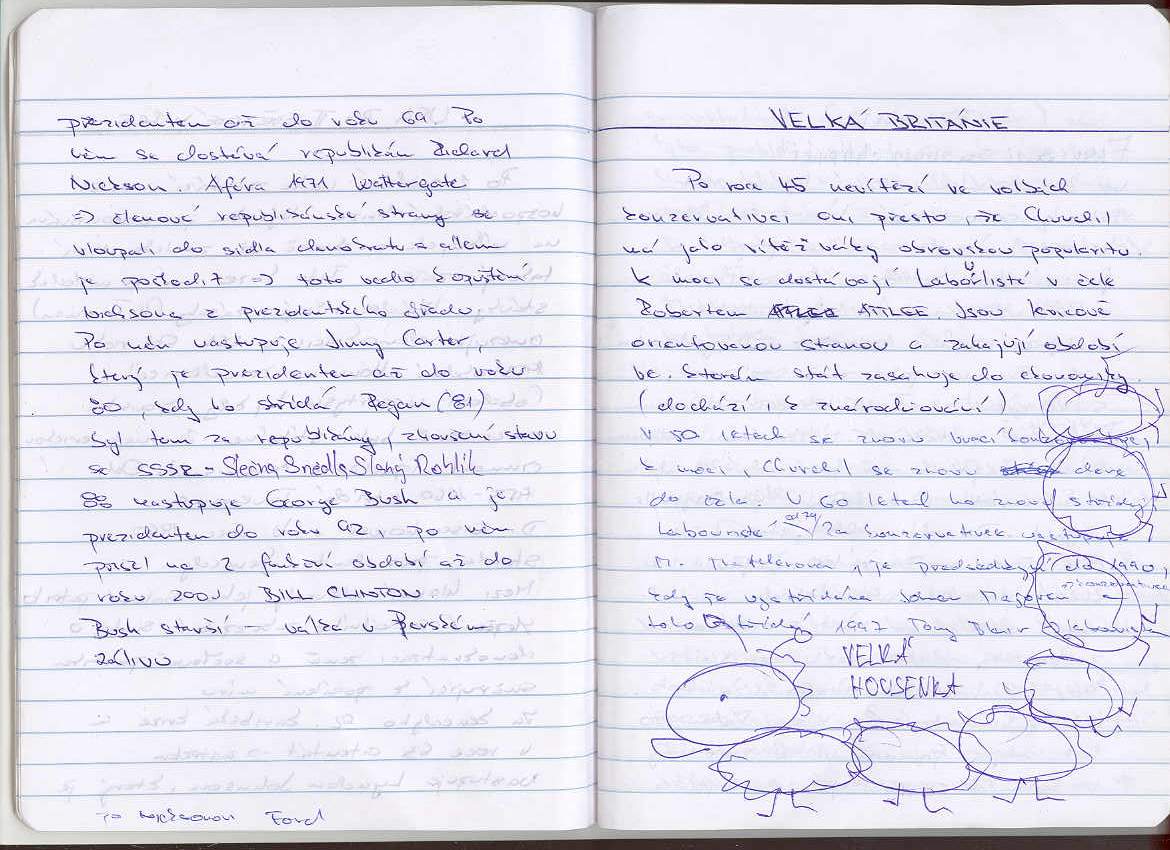 prezidentem až do roku 69. Po
něm se dostává republikán Richard
Nickson. Aféra 1971 Wattergate
=> členové republikánské strany se
vloupali do sídla demokratů a cílem
je poškodit => toto vedlo k opuštění
Nicksona z prezidentského úřadu.
Po něm nastupuje Jimmy Carter,
který je prezidentem až do roku
80, kdy ho střídá Regan (81)
byl tam za republikány, zhoršení stavu
se SSSR - Slečna Snědla Slaný Rohlík
88 nastupuje George Bush a je
prezidentem do roku 92, po něm
přišel na 2 funkční období až do
roku 2001 BILL CLINTON
Bush starší - válka v Perském
zálivu
Po Nicksonovi Ford
VELKÁ BRITÁNIE
Po roce 45 nevítězí ve volbách
konzervativci oni přesto, že Churchil
má jako vítěz války obrovskou popularitu.
K moci se dostávají Labouristé v čele
Robertem ATTLEE. Jsou levicově
orientovanou stranou a zahajují období
ve kterém stát zasahuje do ekonomiky.
(dochází k znárodňování)
V 50 letech se znovu vrací
k moci, Churchil se znovu dere
do čela. V 60 letech ho znovu střídají
Labouristé od 79 za konzervativce nastupuje
M. Thatcherová, je předsedkyní do 1990,
kdy je vystřídána Johnem Majorem z konzervativců
toho střídá 1997 Tony Blair
VELKÁ
HOUSENKA